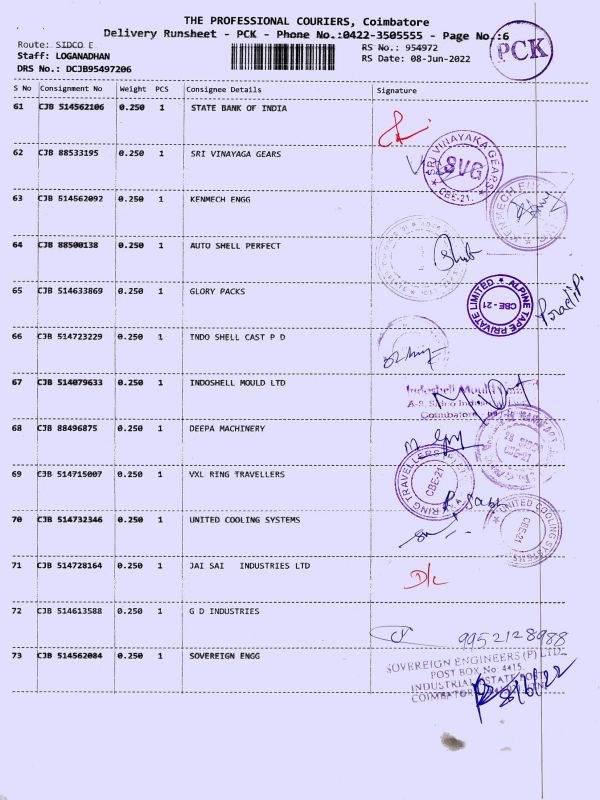 THE PROFESSIONAL COURIERS, Coimbatore
Delivery Runsheet - PCK - Phone No.:0422-3505555 - Page No.:6
Route: SIDCO E
Staff: LOGANADHAN
DRS No.: DCJB95497206
RS No.: 954972
RS Date: 08-Jun-2022
PCK
S No Consignment No Weight PCS Consignee Details Signature
61 CJB 514562106 0.250 1 STATE BANK OF INDIA
62 CJB 88533195 0.250 1 SRI VINAYAGA GEARS
SRI VINAYAKA GEARS SVG CBE-21.
63 CJB 514562092 0.250 1 KENMECH ENGG
64 CJB 88500138 0.250 1 AUTO SHELL PERFECT
65 CJB 514633869 0.250 1 GLORY PACKS
ALPINE TAPE PRIVATE LIMITED CBE-21
66 CJB 514723229 0.250 1 INDO SHELL CAST P D
67 CJB 514079633 0.250 1 INDOSHELL MOULD LTD
Indoshell Mould
A-9, Sidco Industrial
Coimbatore
68 CJB 88496875 0.250 1 DEEPA MACHINERY
69 CJB 514715007 0.250 1 VXL RING TRAVELLERS
RING TRAVELLERS CBE-21
70 CJB 514732346 0.250 1 UNITED COOLING SYSTEMS
UNITED COOLING SYSTEMS CBE-21
71 CJB 514728164 0.250 1 JAI SAI INDUSTRIES LTD
D/L
72 CJB 514613588 0.250 1 G D INDUSTRIES
9952128988
73 CJB 514562084 0.250 1 SOVEREIGN ENGG
SOVEREIGN ENGINEERS (P) LTD.
POST BOX No: 4415,
INDUSTRIAL ESTATE POST
COIMBATORE
8/6/22